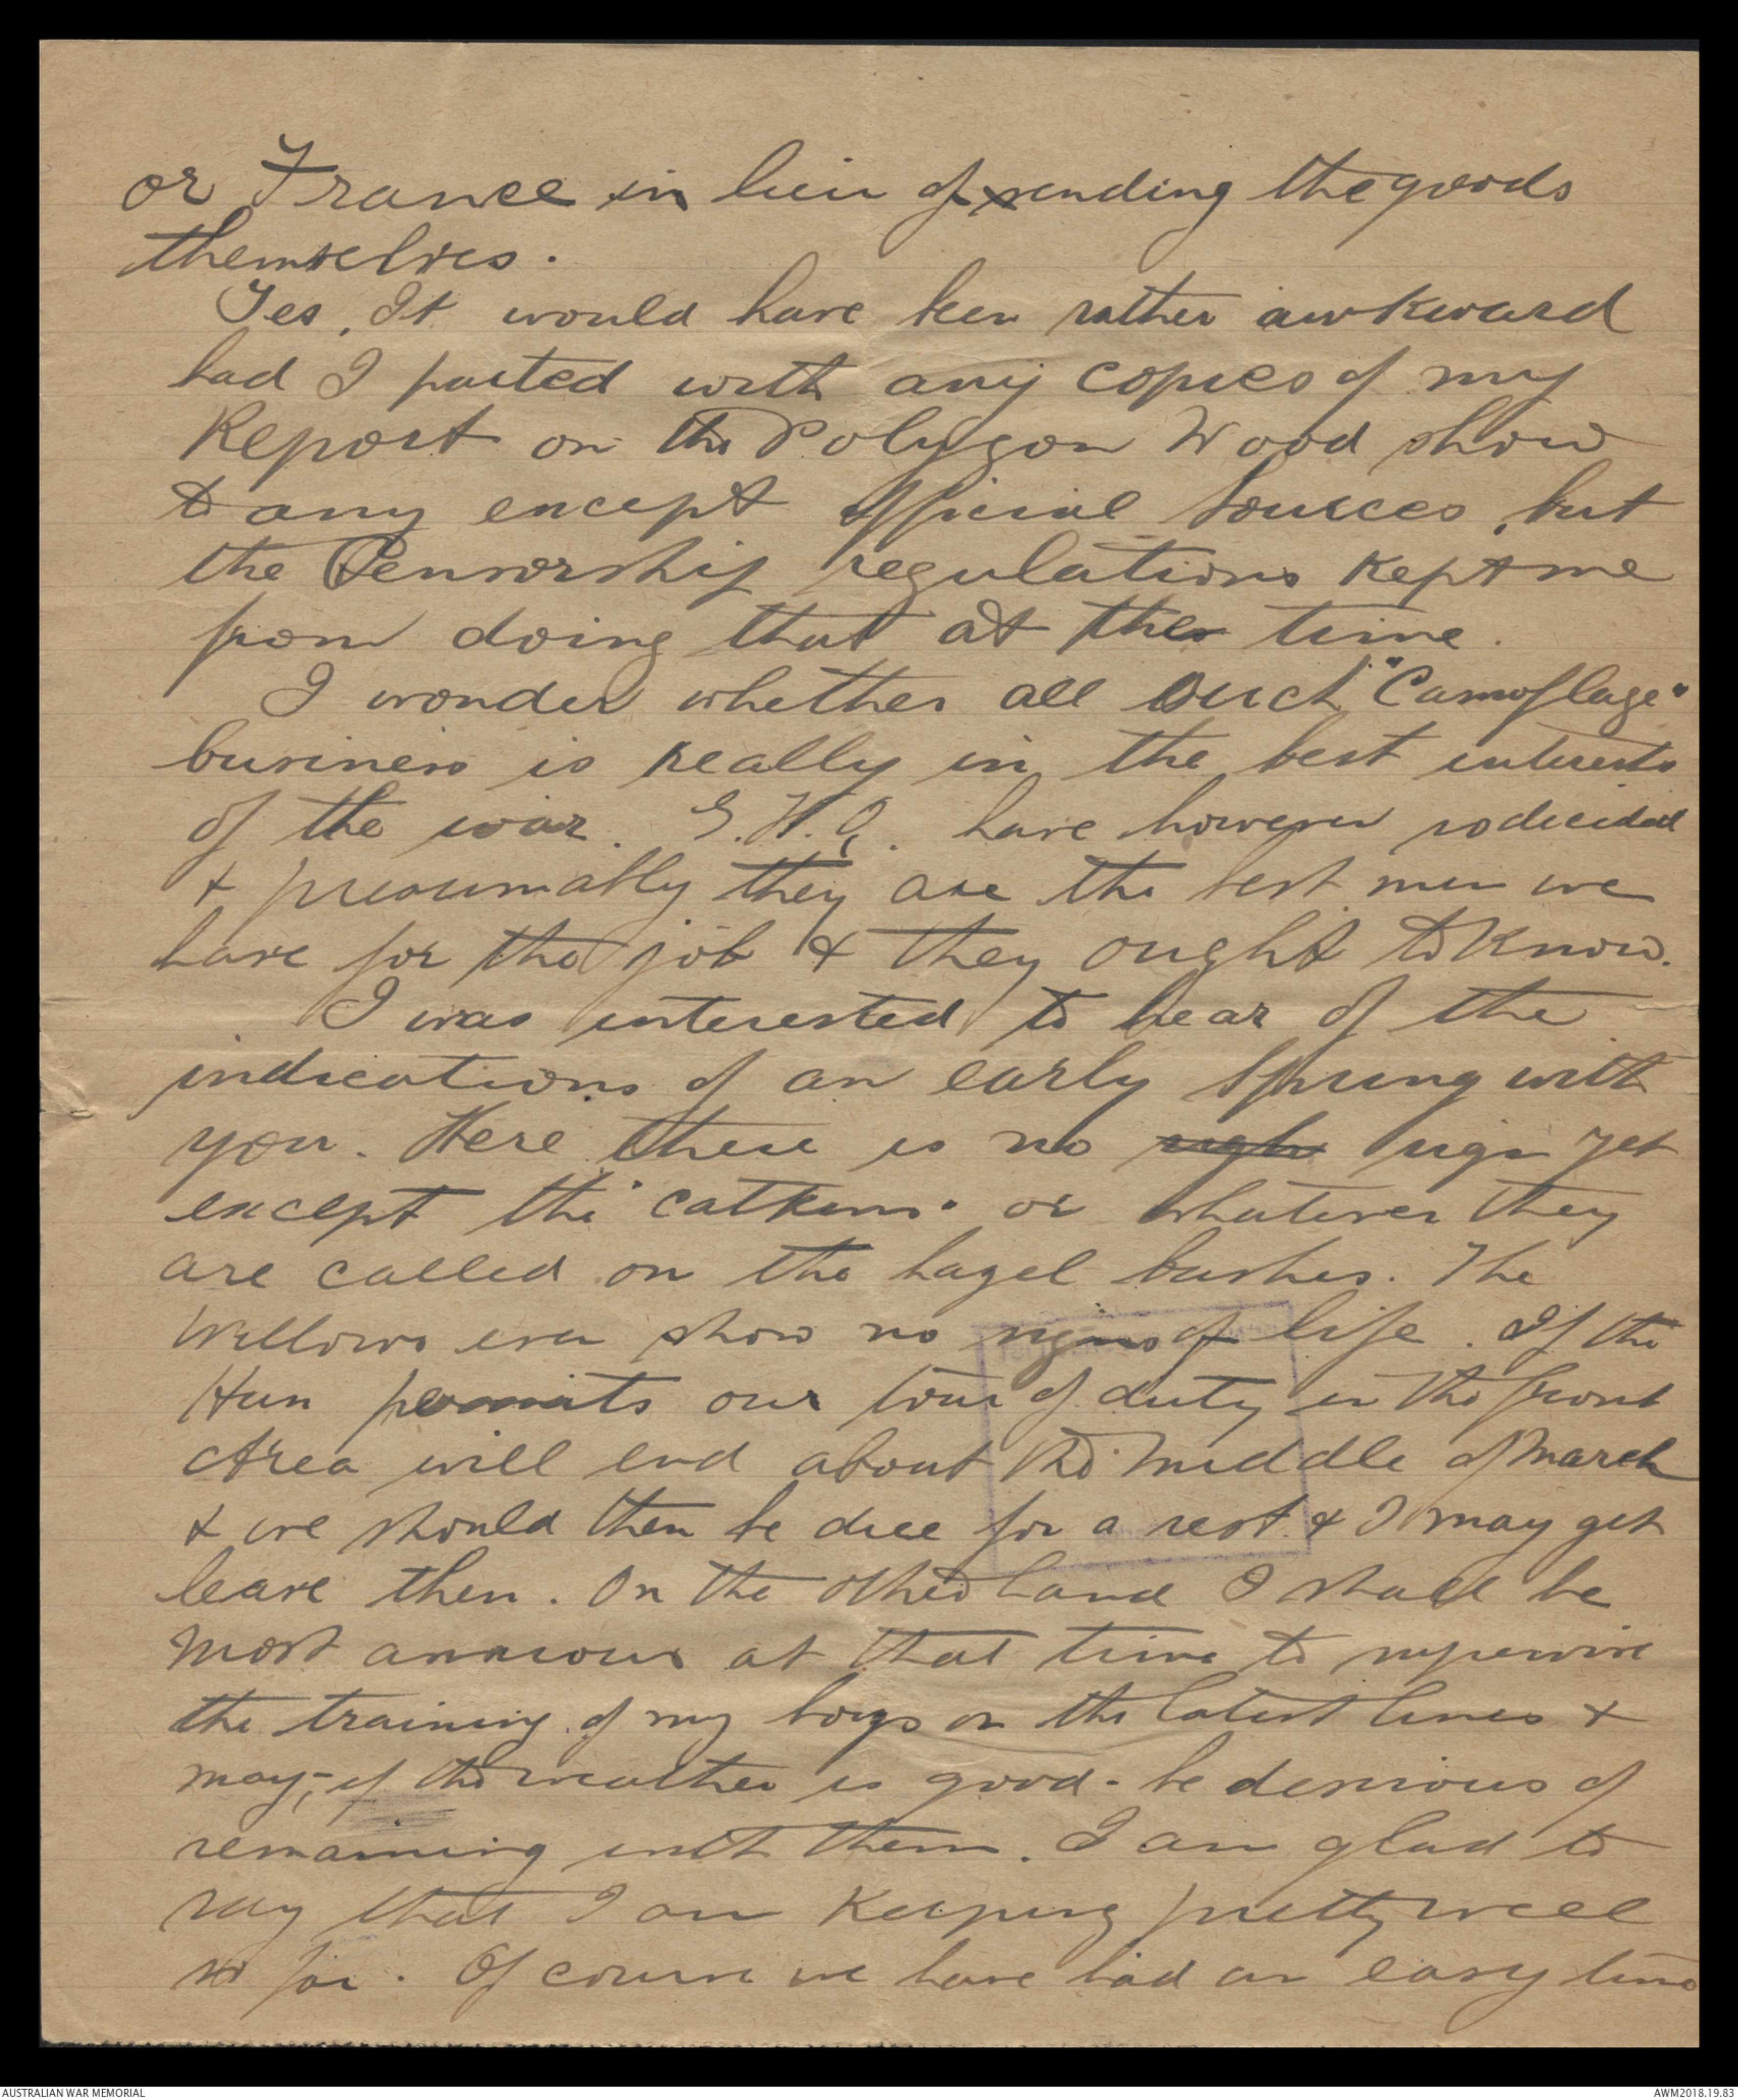 or France in lieu of sending the goods
themselves.
Yes, It would have been rather awkward
had I parted with any copies of my
Report on the Polygon Wood show
to any except official sources, but
the Censorship regulations kept me
from doing that at the time.
I wonder whether all such "Camoflage"
business is really in the best interests
of the war. G.H.Q. have however so decided
& presumably they are the best men we
have for the job & they ought to know.
I was interested to hear of the
indications of an early Spring with
you. Here there is no sigh sign yet
except the "catkins" or whatever they
are called on the hazel bushes. The
Willows even show no signs of life. If the
Hun permits our tour of duty in the front
Area will end about the middle of March
& we should then be due for a rest & I may get
leave then. On the other hand I shall be
most anxious at that time to supervise
the training of my boys on the latest lines &
may, - if the weather is good - be desirous of
remaining with them. I am glad to
say that I am keeping pretty well
so far. Of course we have had an easy time
AUSTRALIAN WAR MEMORIAL
AWM2018.19.83